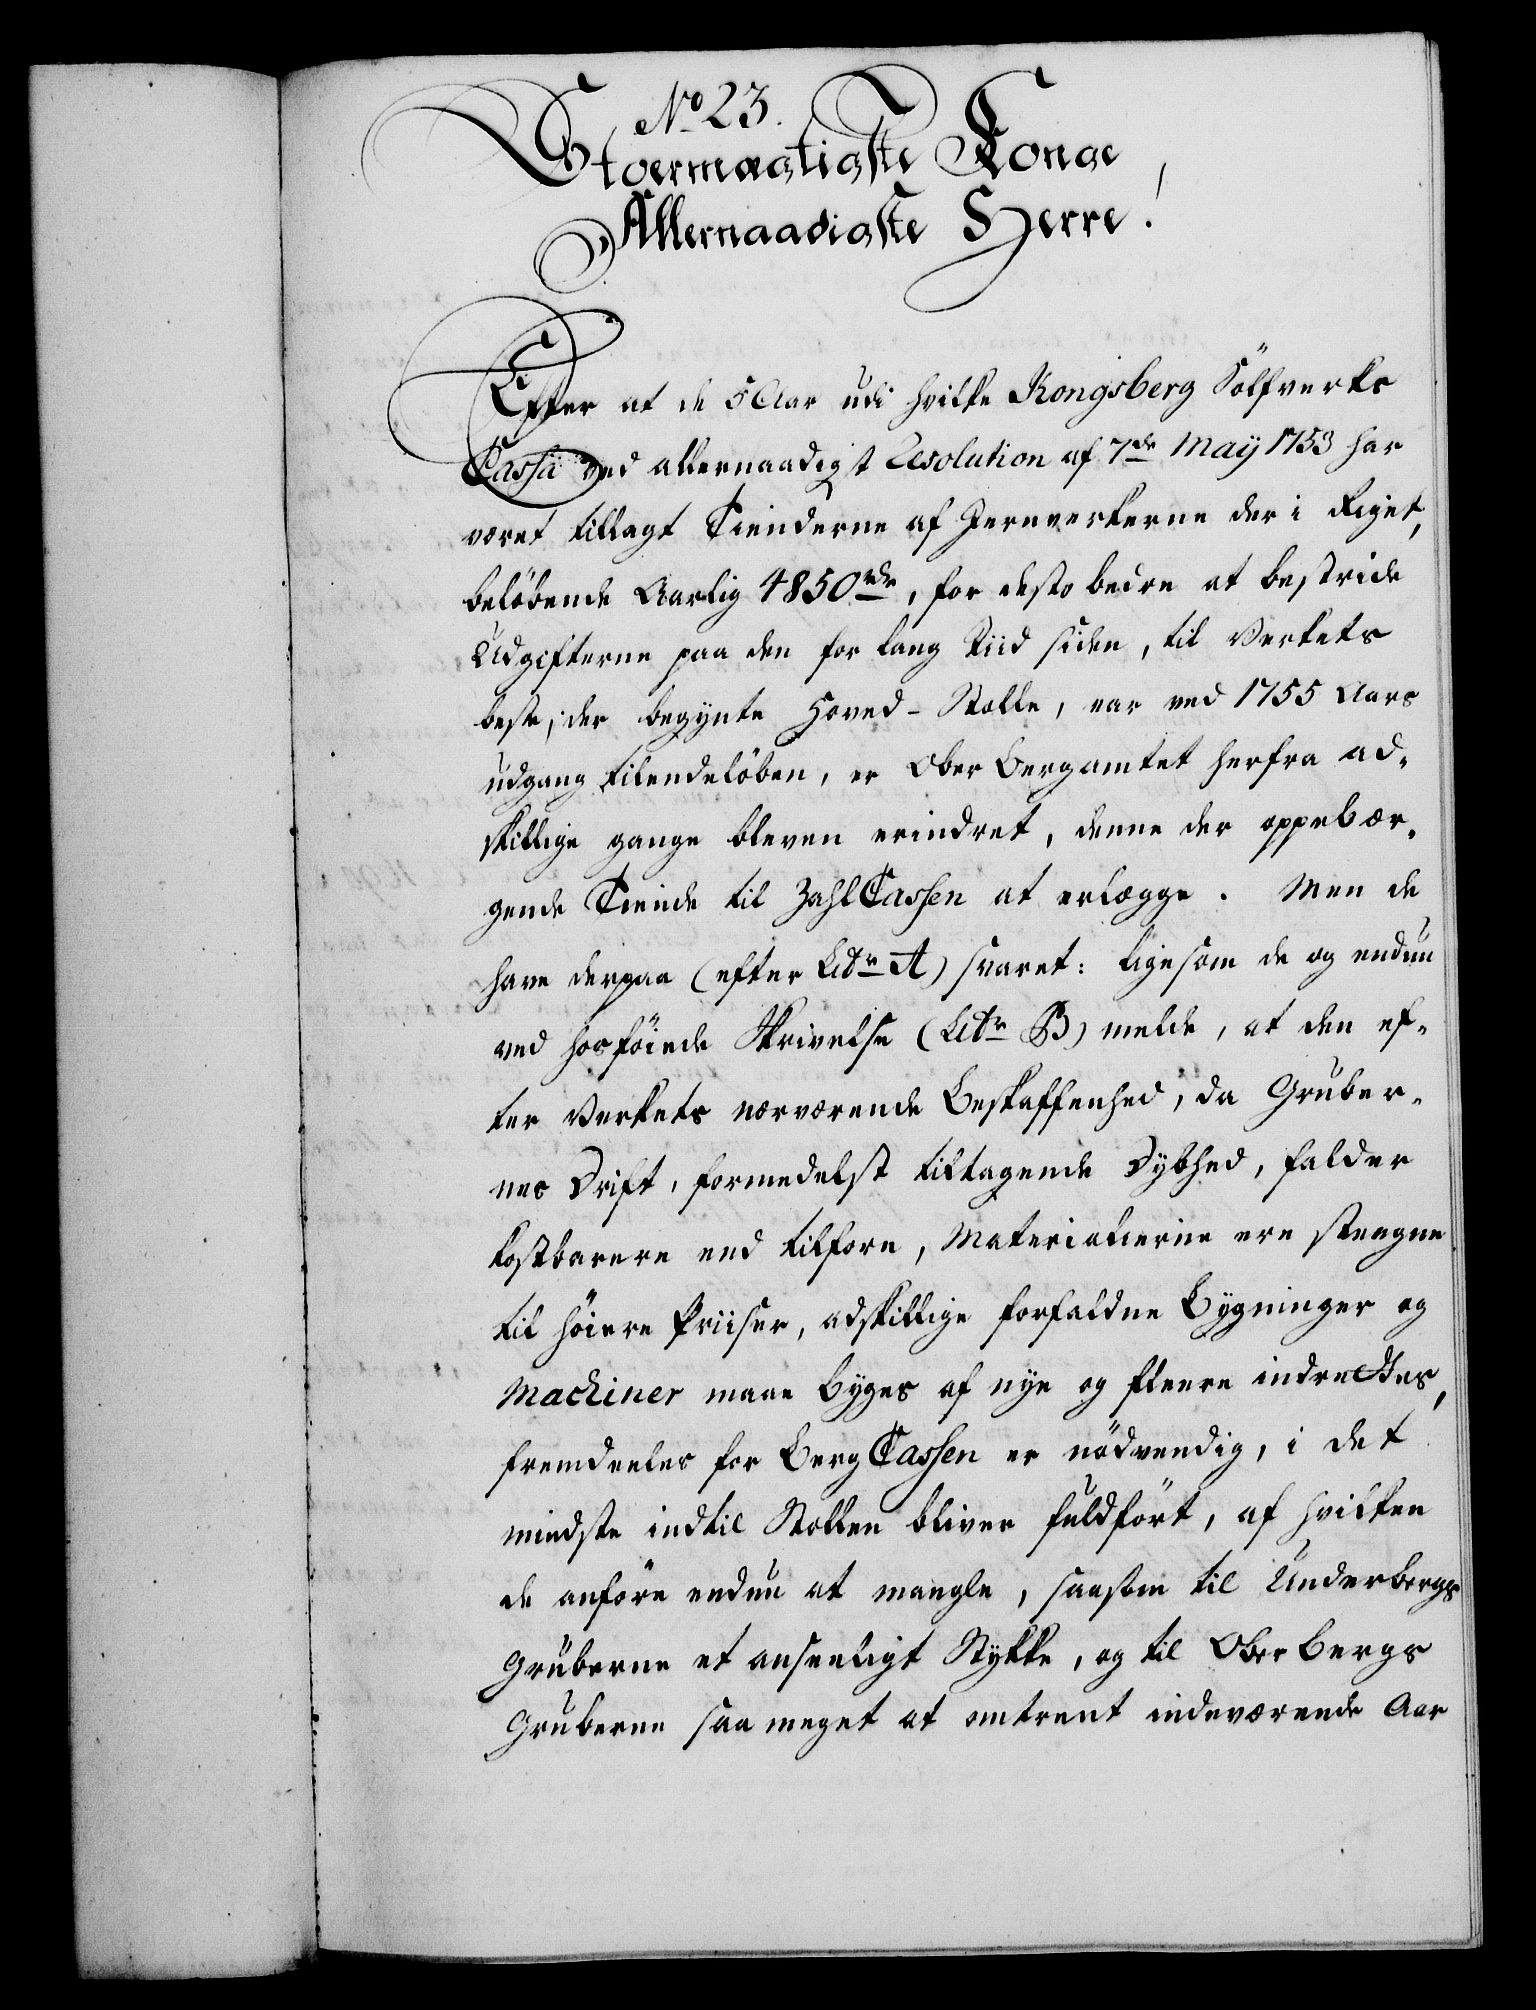 No 23.
Stoermægtigste Konge,
Allernaadigste Herre!
Efter at de 5 Aar udi hvilke Kongsberg Sölfverks
Cassa ved allernaadigst Resolution af 7de Maÿ 1753 har
været tillagt Tienderne af Jernverkerne der i Riget,
belöbende Aarlig 4850 rdr, for desto bedre at bestride
Udgifterne paa den for lang Tiid siden, til Verkets
beste, der begÿnte Hoved-Stolle, var ved 1755 Aars
udgang tilendelöben, er Ober Bergamtet herfra ad-
skillige gange bleven erindret, denne der oppebær-
gende Tiende til Zahl Cassen at erlægge. Men de
have derpaa (efter Litr A) svaret: ligesom de og endnu
ved hosföiede Skrivelse (Litr B) melde, at den ef-
ter Verkets nærværende Beskaffenhed, da Gruber-
nes Drift, formedelst tiltagende Dÿbhed, falder
kostbarere end tilforn, Materialierne ere steegne
til höiere Priiser, adskillige forfaldne Bÿgninger og
Machiner maae bÿges af nÿe og fleere indrettes,
fremdeeles for Berg Cassen er nödvendig, i det
mindste indtil Stollen bliver fuldfört, af hvilken
de anföre endnu at mangle, saasom til Underbergs
Gruberne et anseeligt Stÿkke, og til Ober Bergs
Gruberne saa meget at omtrent indeværende Aar